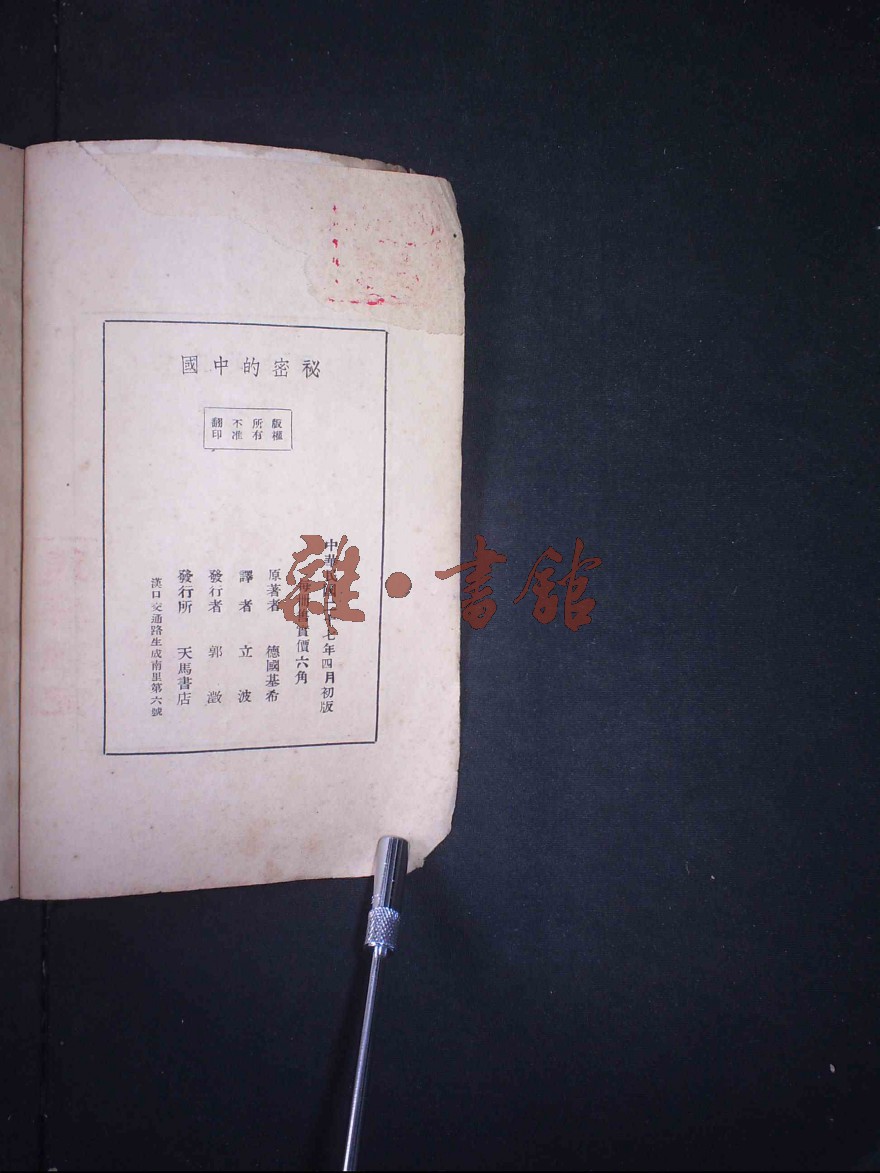 祕密的中國
版權
所有
不准
翻印
中華民國二十七年四月初版
每冊售實價六角
原著者 德國基希
譯者 立波
發行者 郭澂
發行所 天馬書店
漢口交通路生成南里第六號
雜·書館